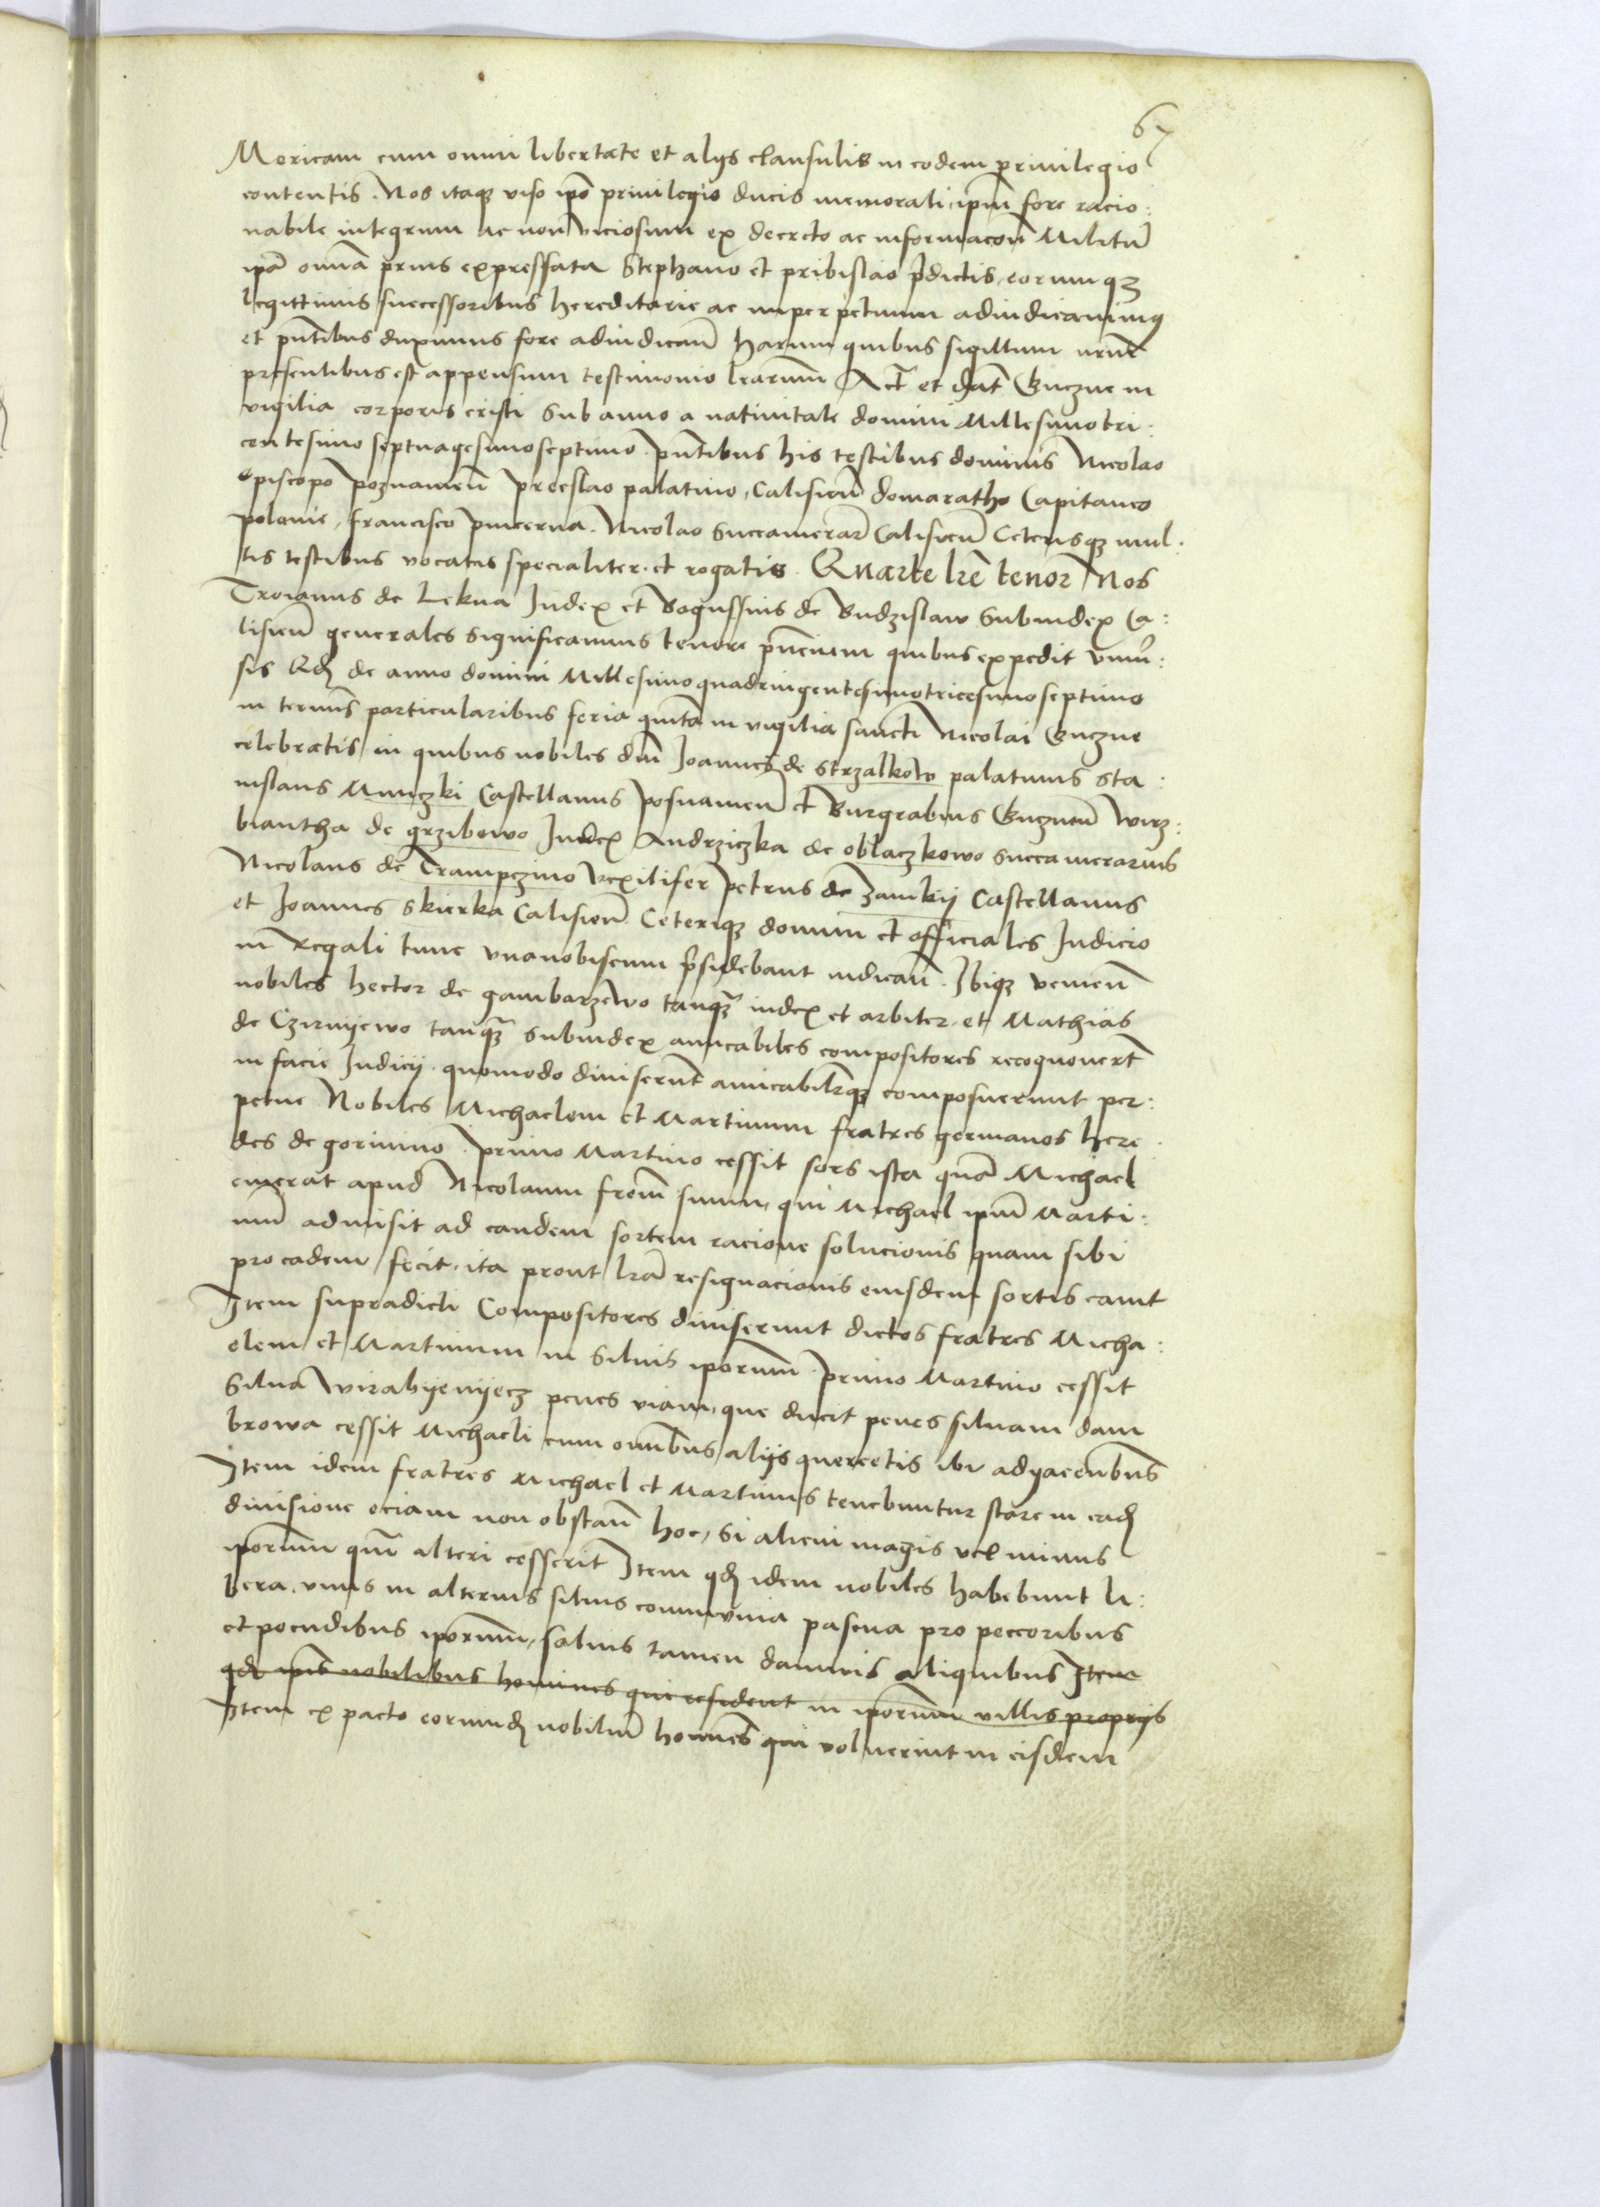 67
Mericam cum omni libertate et alijs clausulis in eodem priuilegio
contentis. Nos itaqz viso ipo priuilegio ducis memorati, ipm fore racio:
nabile integrum ac non viciosum ex decreto ac informacon Militu
ipa omia prius expressata Stephano et pribislao pdictis, eorumqz
legittimis successoribus hereditarie ac inperpetuum adiudicauimus
et pntibus duximus fore adiudicand harum quibus sigillum nrum
presentibus est appensum testimonio lrarum Act et Dat Gnezne in
vigilia corporis cristi Sub anno a natiuitate domini Millesimotri:
centesimo septuagesimoseptimo. pntibus his testibus dominis Nicolao
Episcopo poznamen Preeslao palatino, Calisien domaratho Capitaneo
polonie, francisco pincerna. Nicolao Succamerar Calisien Ceterisqz mul:
tis testibus vocatis specialiter et rogatis. Quarte lre tenor Nos
Troianus de Lekna Judex et Bogussius de Budzislaw Subiudex Ca:
lisien generales significamus tenore pncium quibus expedit vniu:
sis Qd de anno domini Millesimoquadringentesimotricesimoseptimo
in termis particularibus feria quita in vigilia sancti Nicolai Gnezne
celebratis in quibus nobiles dni Joannes de Strzalkow palatinus Sta:
nislaus Munczki Castellanus posnamen et Burgrabius Gneznen Wirz:
biantha de grzibowo Judex Andrziczka de oblaczkowo Succamerarius
Nicolaus de Trampczino Vexilifer petrus de Zamkij Castellanus
et Joannes Skierka Calisien Ceteriqz domini et officiales Judicio
in Regali tunc vnanobiscum psidebant iudican. Ibiqz venien
nobiles hector de gambarzewo tanqz iudex et arbiter et Mathias
de Czirnijewo tanqz subiudex amicabiles compositores recognouert
in facie Judicij quomodo diuiserunt amicabiliqz composuerunt per:
petue Nobiles Michaelem et Martinum fratres germanos here
des de gorinino. primo Martino cessit sors ista qua Michael
emerat apud Nicolaum frem suum, qui Michael ipm Marti:
num admisit ad eandem sortem racione solucionis quam sibi
pro eadem fecit, ita prout lra resignacionis eiusdem sortis canit
Item supradicti Compositores diuiserunt dictos fratres Micha:
elem et Martinum in siluis iporum primo Martino cessit
Silua Wirabijenijecz penes viam, que ducit penes siluam dam
browa cessit Michaeli cum omibus alijs quercetis ibi adyacentibus
Item idem fratres Michael et Martinus tenebuntur stare in ead
diuisione eciam non obstan hoc, Si alicui magis vel minus
iporum qm alteri cesserit Item qd idem nobiles habebunt li:
bera. vnus in alterius siluis communia pascua pro peccoribus
et pecudibus iporum, saluis tamen damnis aliquibus Item
qd ipis nobilibus homines qui resident in iporum villis proprijs
Item ex pacto eorumd nobiliu homines qui voluerint in eisdem